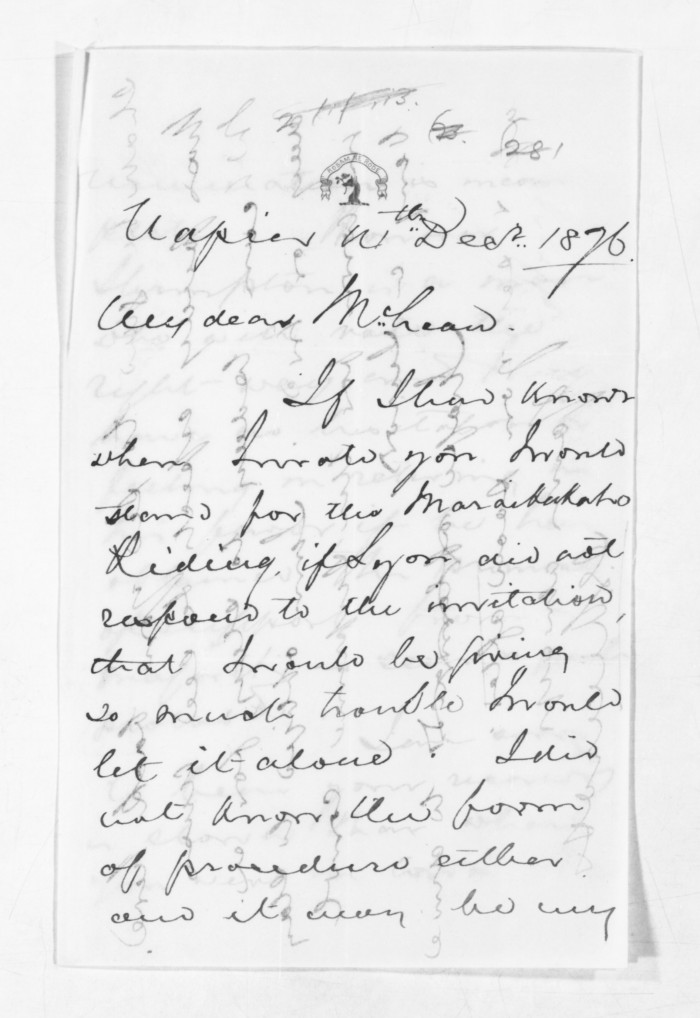 281
Napier 11th Decr. 1876.
My dear McLean.
If I had known
when I wrote you I would
stand for the Maraekakaho
Riding, if Lyon did not
respond to the invitation,
that I would be giving
so much trouble I would
let it alone. I did
not know the form
of procedure either
and it may be my